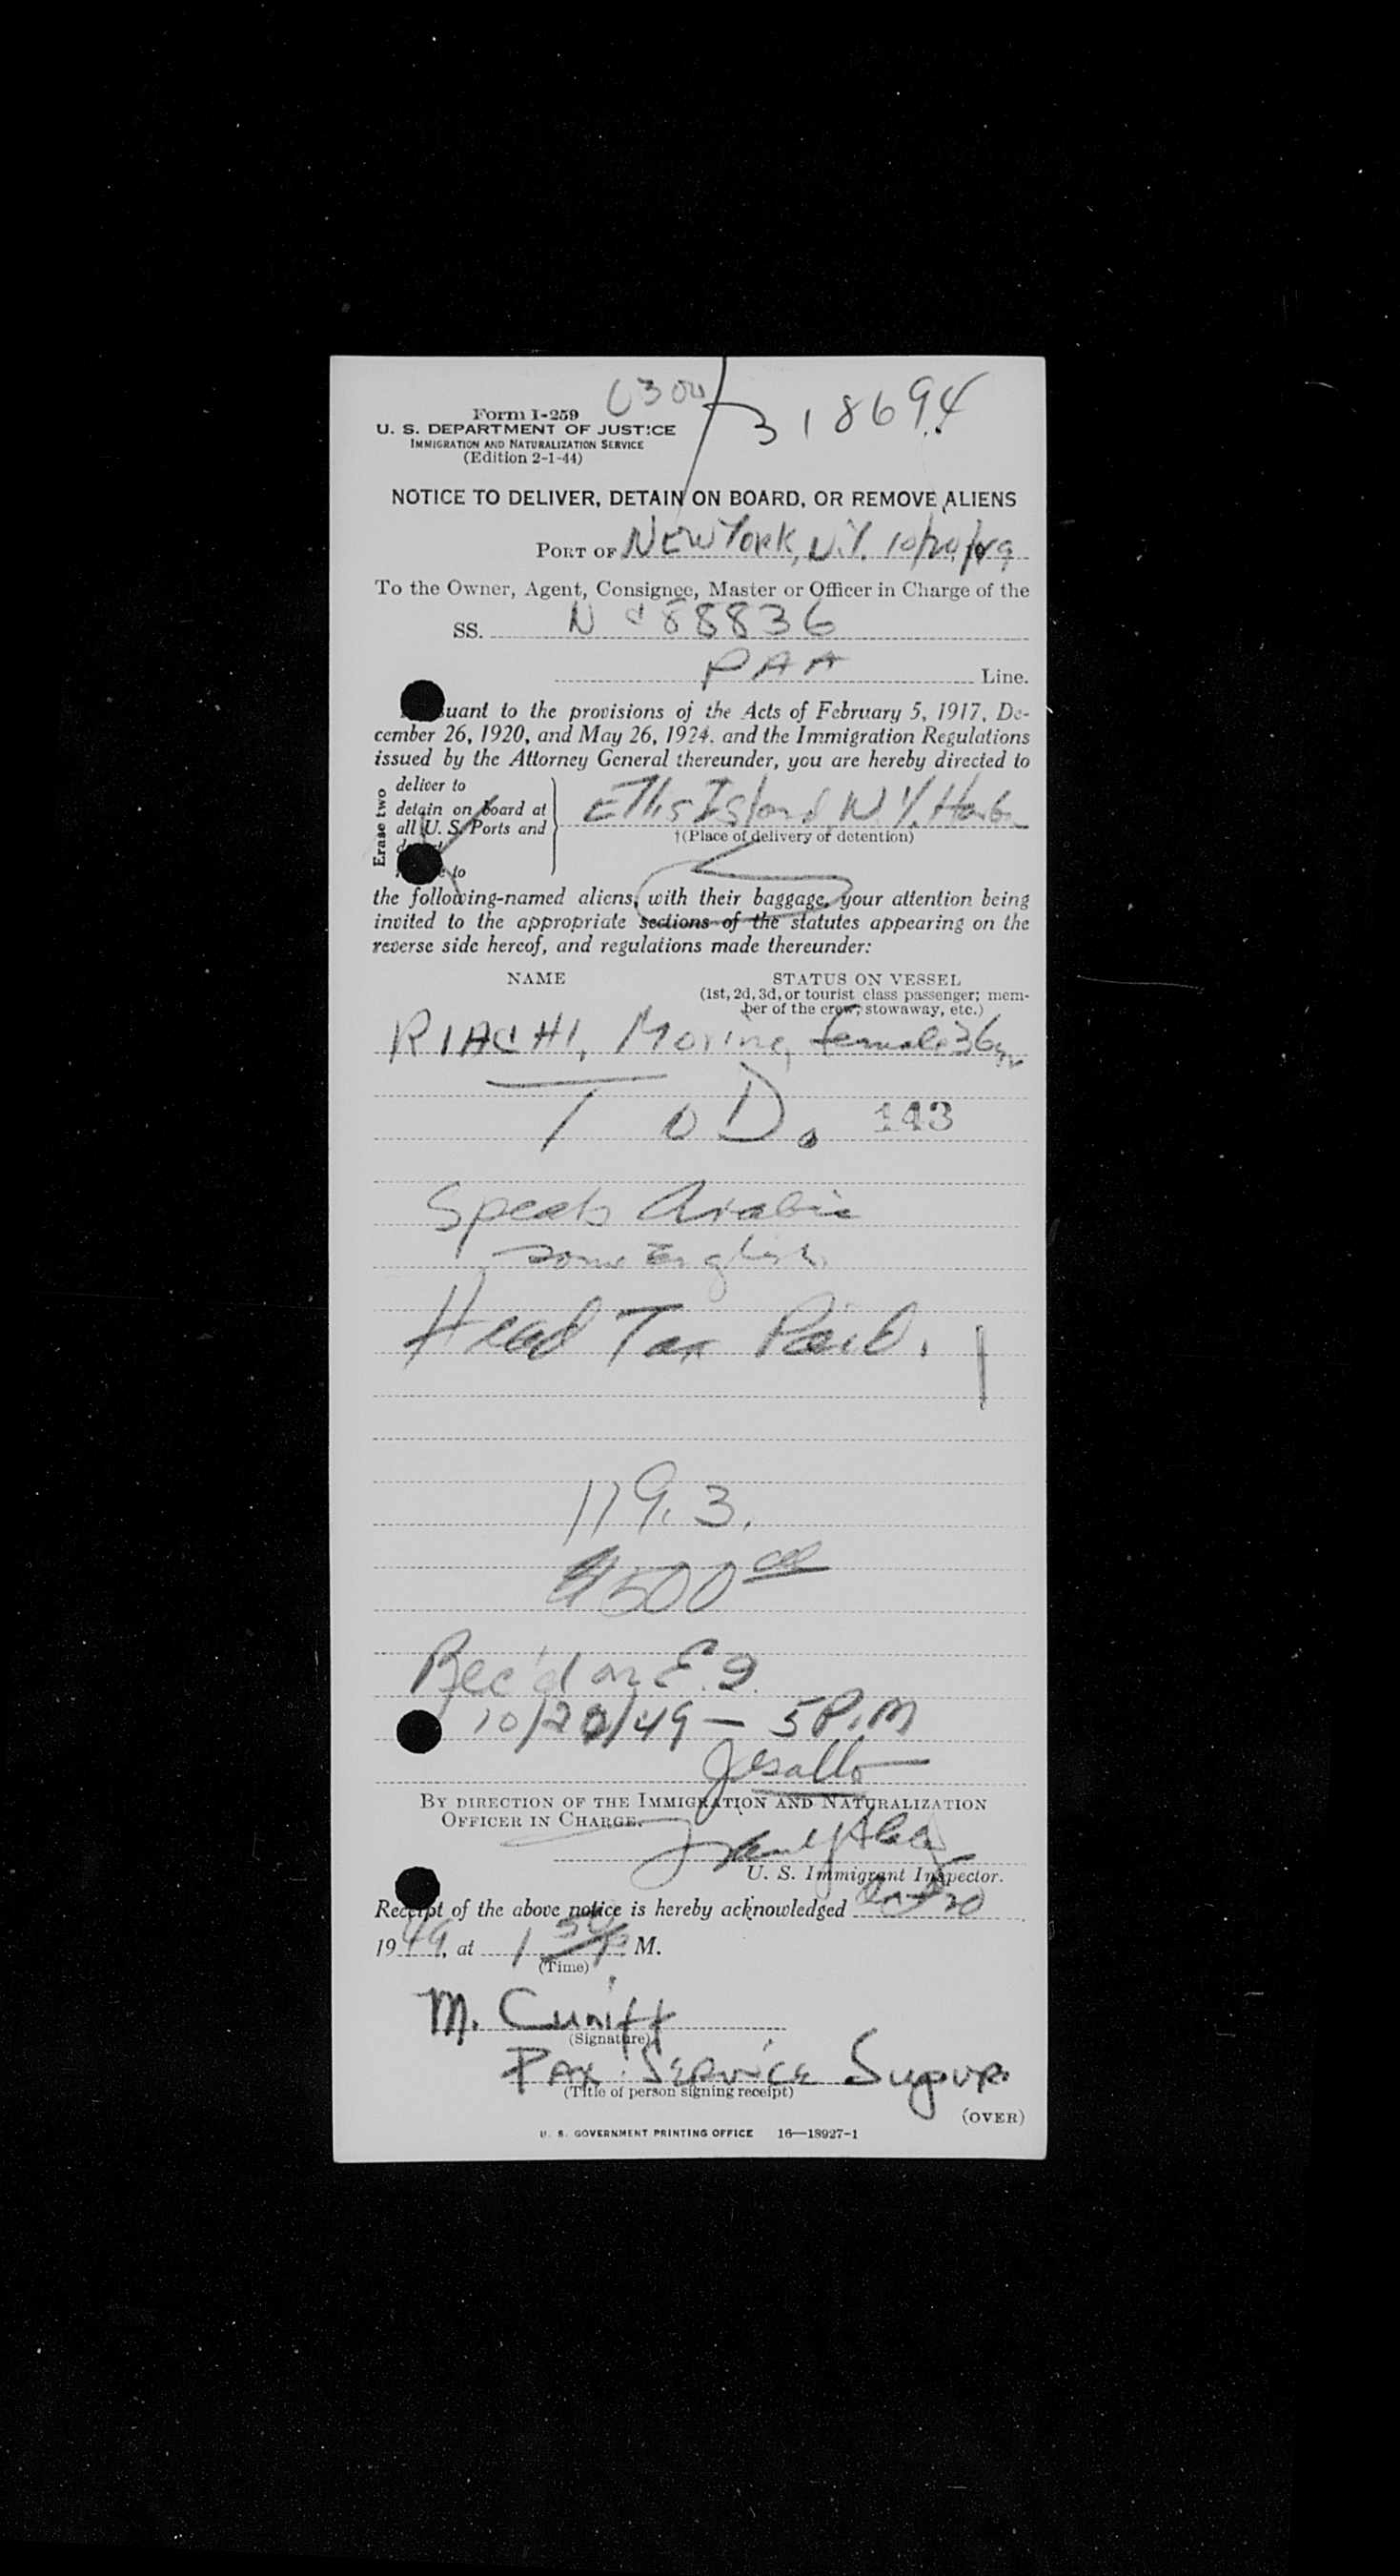 0300 / 318694
Form I-259
U. S. DEPARTMENT OF JUSTICE
IMMIGRATION AND NATURALIZATION SERVICE
(Edition 2-1-44)
NOTICE TO DELIVER, DETAIN ON BOARD, OR REMOVE ALIENS
PORT OF New York, N.Y. 10/20/49
To the Owner, Agent, Consignee, Master or Officer in Charge of the
SS. N 88836
PAA Line.
uant to the provisions of the Acts of February 5, 1917, De-
cember 26, 1920, and May 26, 1924, and the Immigration Regulations
issued by the Attorney General thereunder, you are hereby directed to
Erase two
deliver to
detain on board at
all U. S. Ports and
to
Ellis Island, N.Y. Harbor
†(Place of delivery or detention)
the following-named aliens, with their baggage, your attention being
invited to the appropriate sections of the statutes appearing on the
reverse side hereof, and regulations made thereunder:
NAME STATUS ON VESSEL
(1st, 2d, 3d, or tourist class passenger; mem-
ber of the crew, stowaway, etc.)
RIACHI, female 36
T D. 143
Speaks Arabic
some English
Head Tax Paid.
179.3.
$500
Rec'd on E.I.
10/20/49 — 5 P.M
BY DIRECTION OF THE IMMIGRATION AND NATURALIZATION
OFFICER IN CHARGE.
U. S. Immigrant Inspector.
Receipt of the above notice is hereby acknowledged Oct 20
1949, at 1 M.
(Time)
M. Cuniff
(Signature)
Pax. Service Supvr.
(Title of person signing receipt)
(OVER)
U. S. GOVERNMENT PRINTING OFFICE 16—18927-1